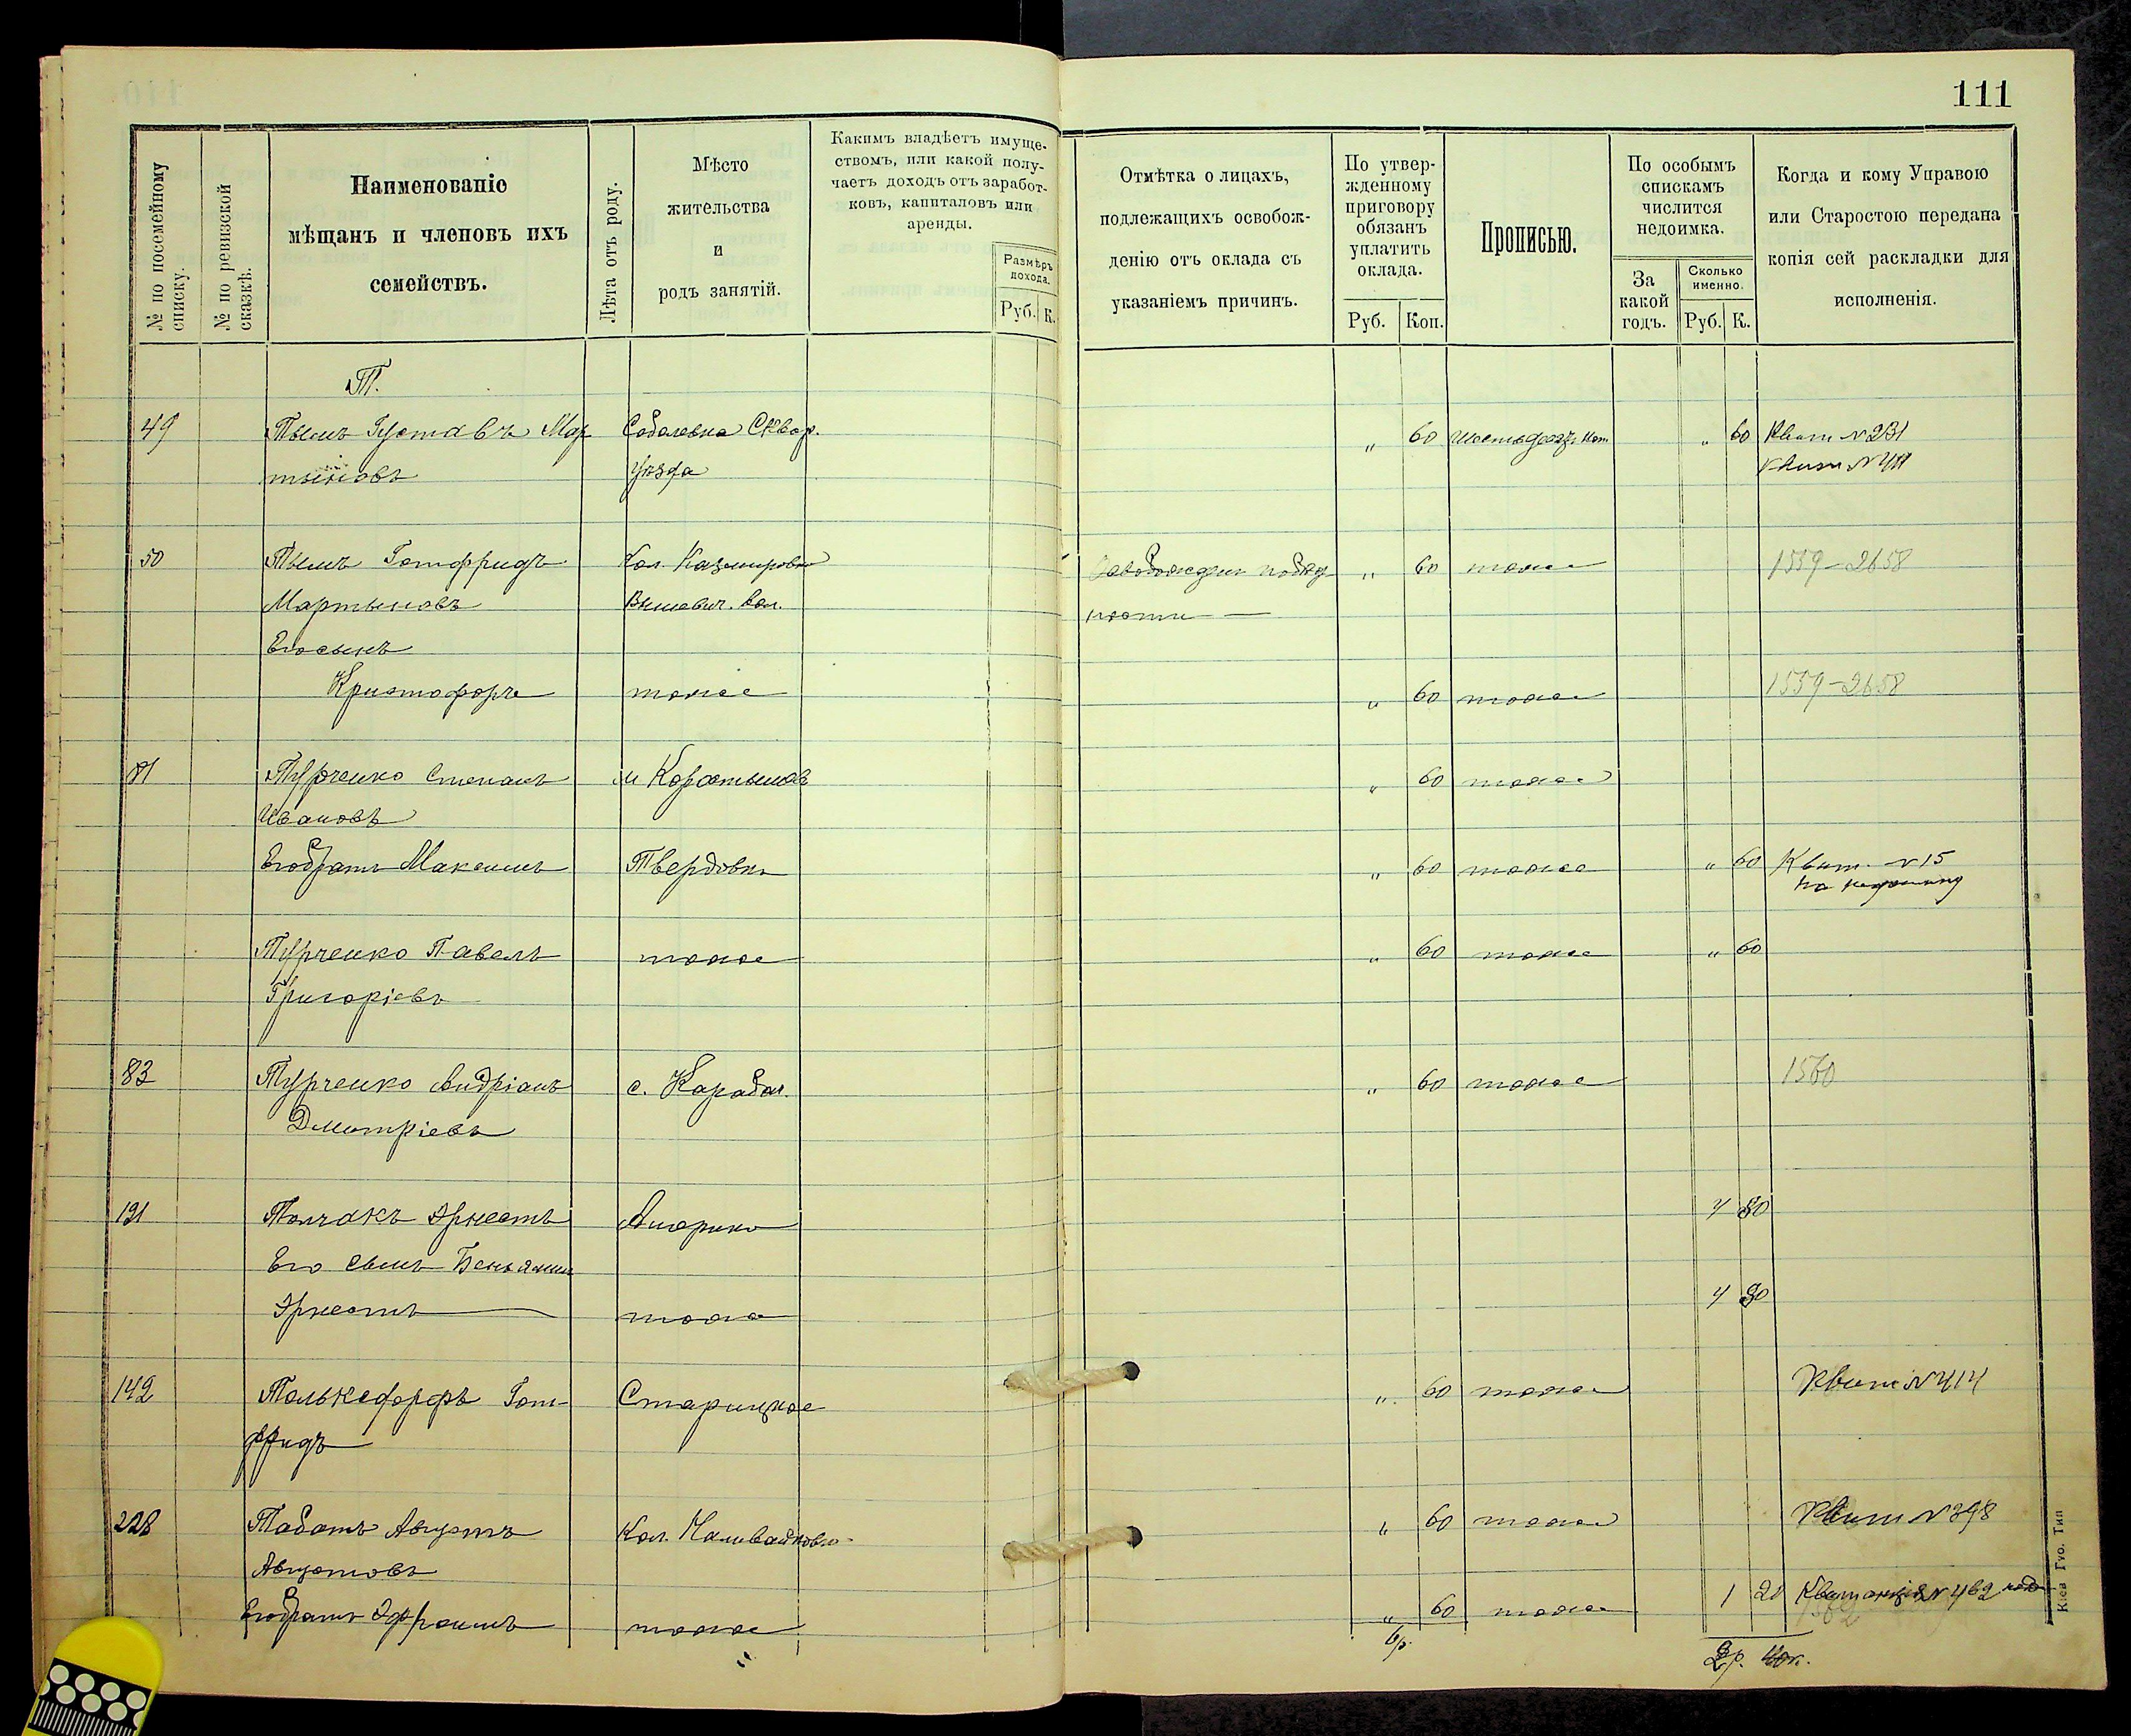 111
№ по посемейному списку.
№ по ревизской сказкѣ.
Наименованіе
мѣщанъ и членовъ ихъ
семействъ.
Лѣта отъ роду.
Мѣсто
жительства
и
родъ занятій.
Какимъ владѣетъ имуще-
ствомъ, или какой полу-
чаетъ доходъ отъ заработ-
ковъ, капиталовъ или
аренды.
Размѣръ
дохода.
Руб. К.
Отмѣтка о лицахъ,
подлежащихъ освобож-
денію отъ оклада съ
указаніемъ причинъ.
По утвер-
жденному
приговору
обязанъ
уплатить
оклада.
Руб. Коп.
Прописью.
По особымъ
спискамъ
числится
недоимка.
За
какой
годъ.
Сколько
именно.
Руб. К.
Когда и кому Управою
или Старостою передана
копія сей раскладки для
исполненія.
Т.
49 Тымъ Густавъ Мар Соболевка Сквор. „ 60 шестьдеся „ 60 Квит №231
тыновъ Уѣзда Квит №411
50 Тымъ Готфридъ Кол. Казимировка „ 60 тоже 1559-2658
Мартыновъ Вышевич. вол.
Его сынъ
Христофоръ тоже „ 60 тоже 1559-2658
81 Турченко Степанъ м Коростышев „ 60 тоже
Ивановъ
Его братъ Максимъ Твердовка „ 60 тоже „ 60 Квит. №15
на
Турченко Павелъ тоже „ 60 тоже „ 60
Григоріевъ
83 Турченко Андріанъ с. Карабач. „ 60 тоже 1560
Дмитріевъ
191 Толчакъ Эрнестъ Америка 4 80
Его сынъ Беньямин
Эрнестъ тоже 4 80
142 Тольксфорфъ Гот- Старицкое „ 60 тоже Квит №414
фридъ
228 Табатъ Августъ Кол. Наливайковка „ 60 тоже Квит №398
Августовъ
Его братъ Эфраимъ тоже „ 60 тоже 1 20 Квитанція №462
6р.
2р. 40к.
Кіев Гуо. Тип